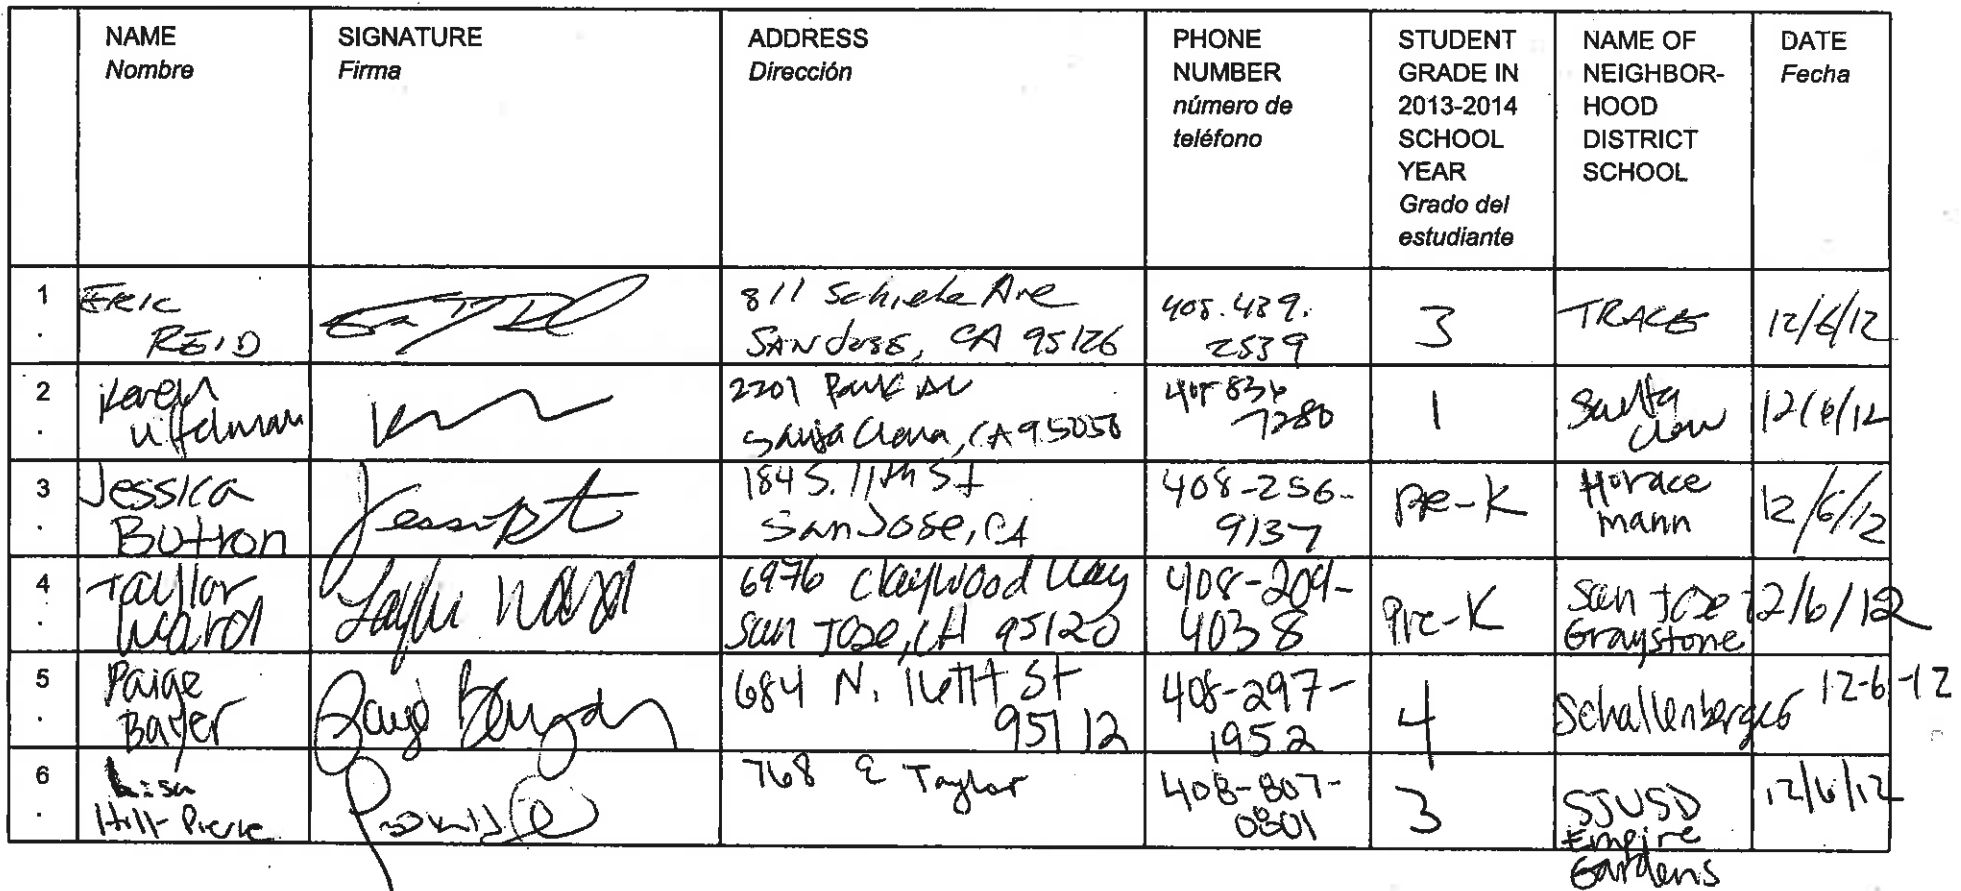 NAME
Nombre
SIGNATURE
Firma
ADDRESS
Dirección
PHONE
NUMBER
número de
teléfono
STUDENT
GRADE IN
2013-2014
SCHOOL
YEAR
Grado del
estudiante
NAME OF
NEIGHBOR-
HOOD
DISTRICT
SCHOOL
DATE
Fecha
1
.
ERIC
REID
811 Schiele Ave
SAN Jose, CA 95126
408.439.
2539
3
TRACE
12/6/12
2
.
Karen
Uffelman
2201 Park Av
Santa Clara, CA 95050
408 836
7280
1
Santa
Clara
12/6/12
3
.
Jessica
Butron
184 S. 11th St
San Jose, CA
408-256-
9137
pre-K
Horace
mann
12/6/12
4
.
Taylor
Ward
Taylor Ward
6976 Claywood Way
San Jose, CA 95120
408-209-
4038
Pre-K
San Jose
Graystone
12/6/12
5
.
Paige
Bayer
684 N. 16TH St
95112
408-297-
1952
4
Schallenberger
12-6-12
6
.
Lisa
Hill-Pierre
768 E Taylor
408-807-
0801
3
SJUSD
Empire
Gardens
12/6/12